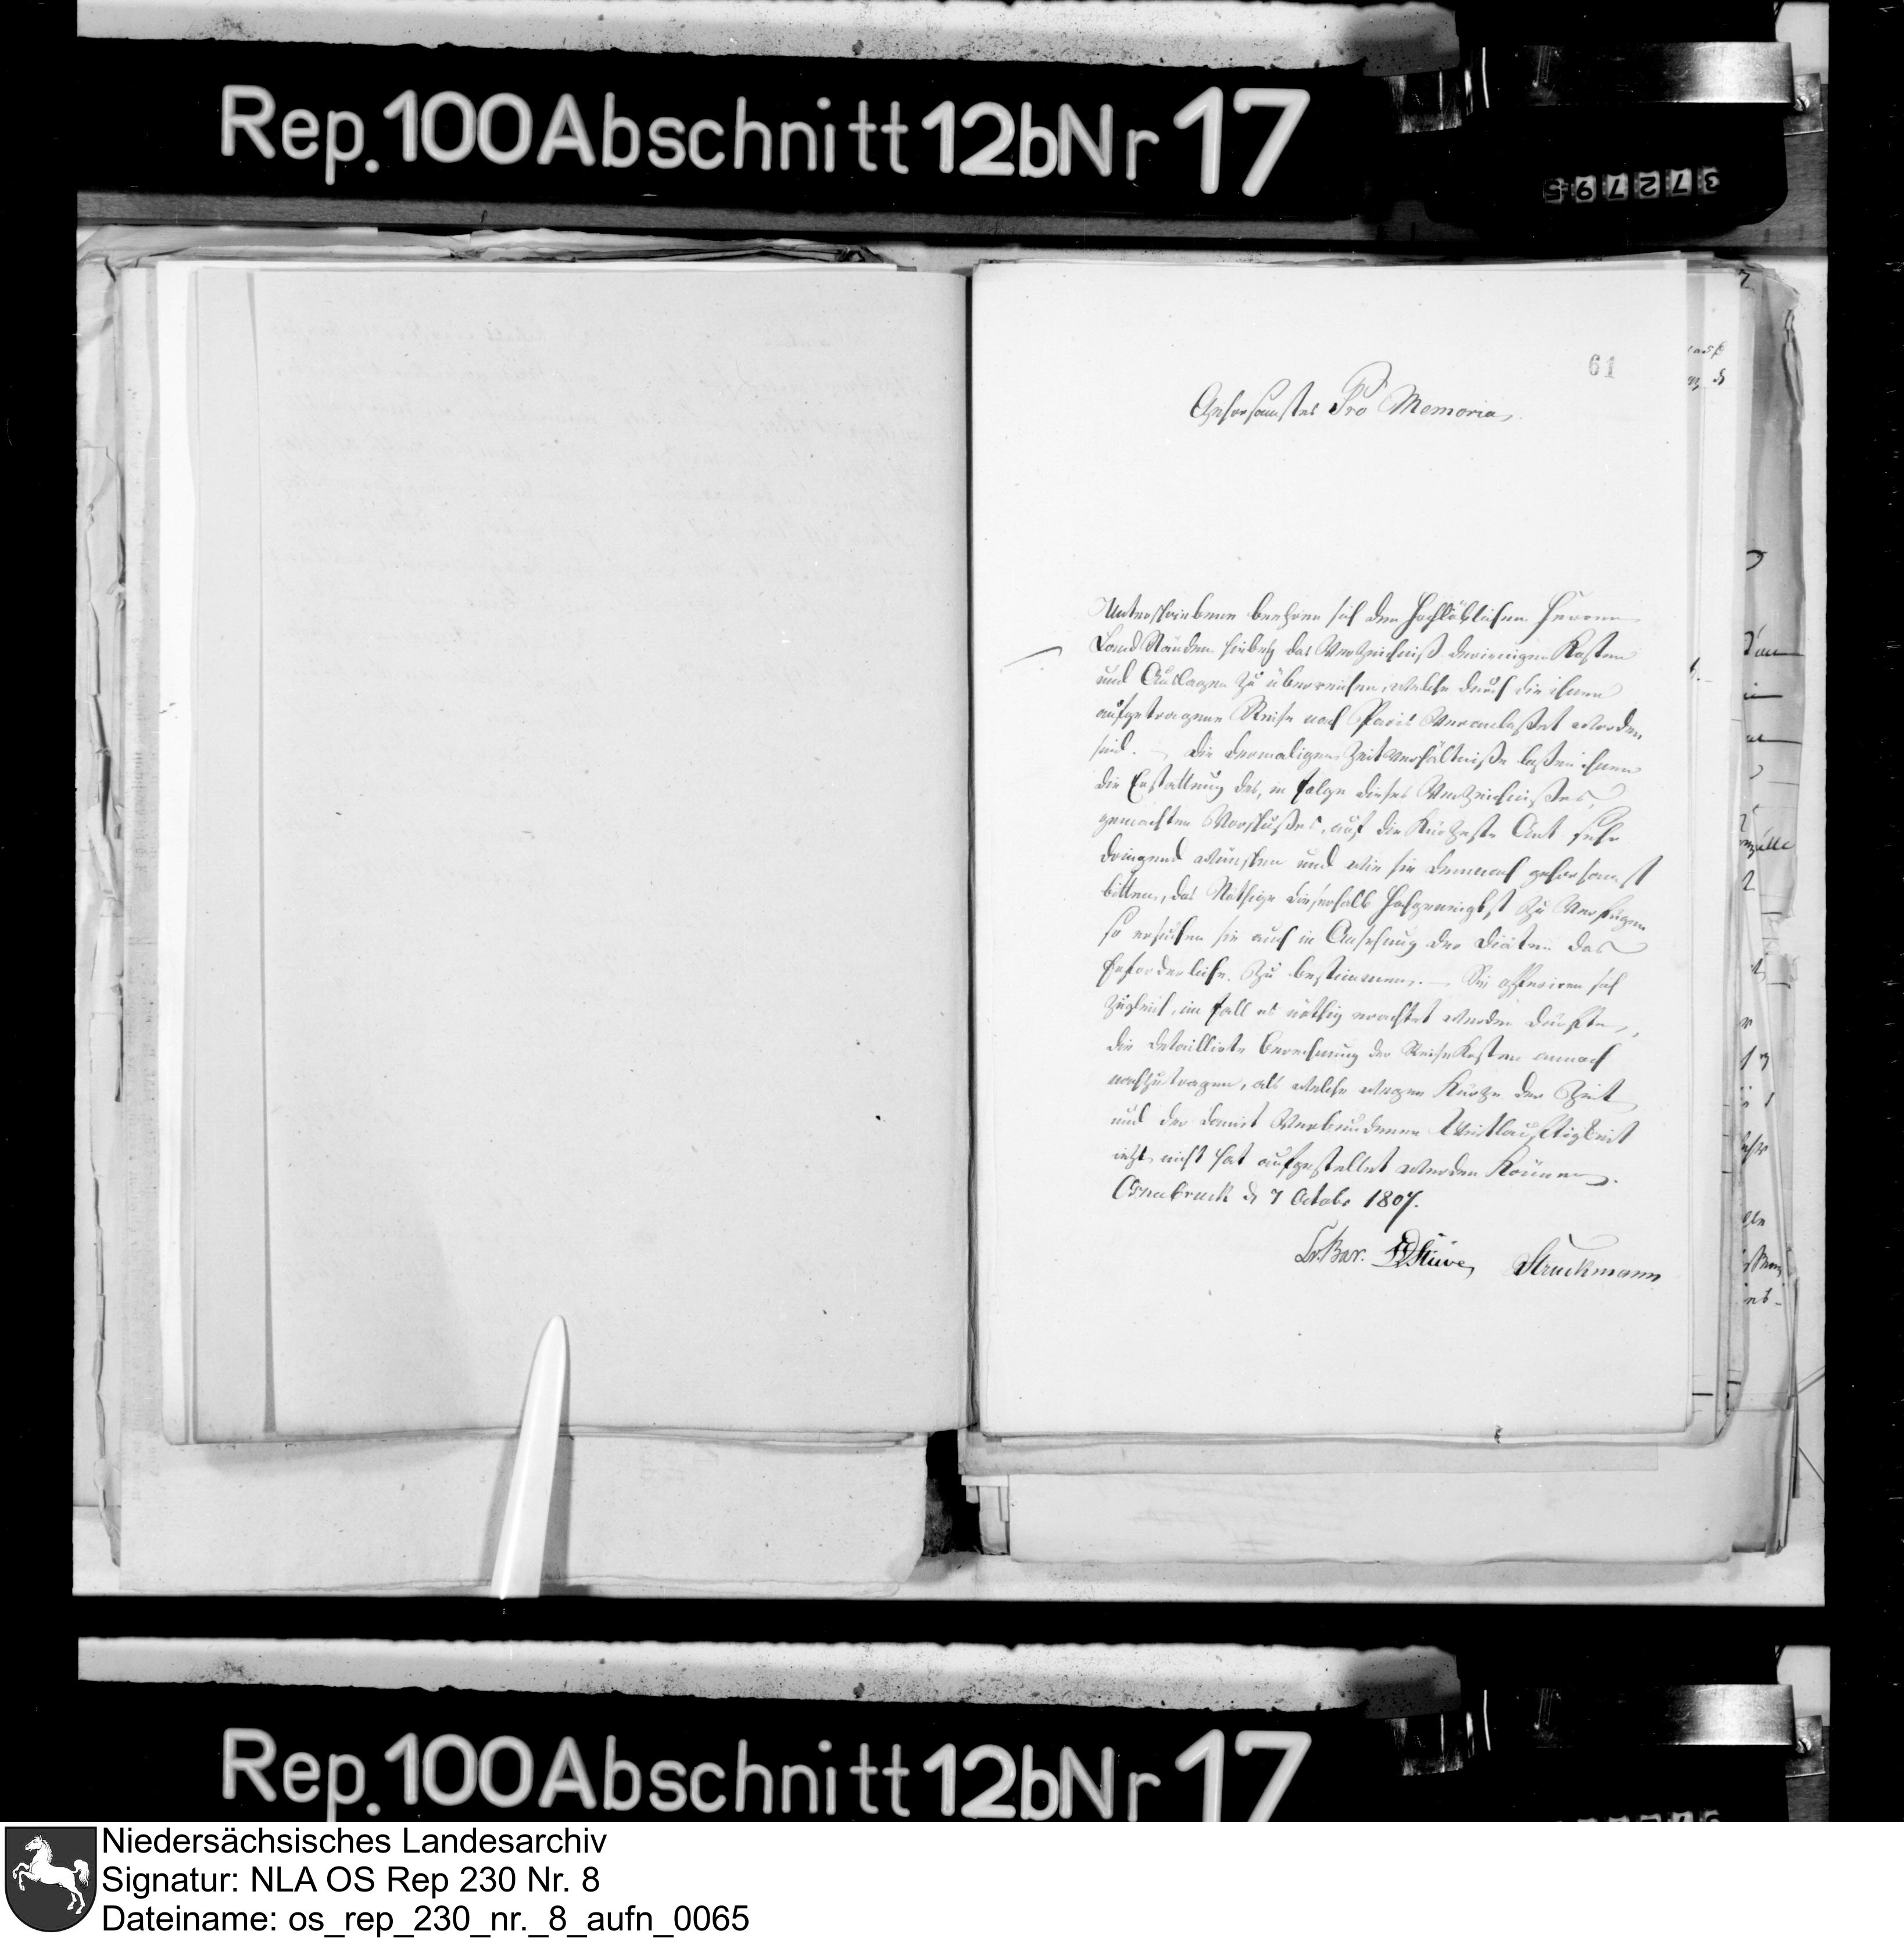 Rep. 100 Abschnitt 12b Nr 17
372795
61
Gehorsamstes Pro Memoria,
Unterschriebene beehren sich den Hochlöblichen Herren
Land Ständen hiebey das Verzeichniß derienigen Kosten
und Auslagen zu überreichen, welche durch die ihnen
aufgetragene Reise nach Paris veranlaßet worden
sind. — Die dermaligen Zeitverhältniße laßen ihnen
die Erstattung des, in Folge dieses Verzeichnißes,
gemachten Vorschußes, auf die Kürzeste Art sehr
dringend wünschen und wie sie demnach gehorsamst
bitten, das Nöthige dieserhalb hochgeneigtst zu verfügen
so ersuchen sie auch in Ansehung der Diäten das
Erforderliche zu bestimmen. — Sie offeriren sich
zugleich, im Fall es nöthig erachtet werden dürfte,
die detaillirte Berechnung der Reisekosten annoch
nachzutragen, als welche wegen Kürze der Zeit
und der damit verbundenen Weitläuftigkeit
ietzt nicht hat aufgestellet werden können.
Osnabruck d 7 Octobr 1807.
v. Bar. Stüve Struckmann
Rep. 100 Abschnitt 12b Nr 17
Niedersächsisches Landesarchiv
Signatur: NLA OS Rep 230 Nr. 8
Dateiname: os_rep_230_nr._8_aufn_0065